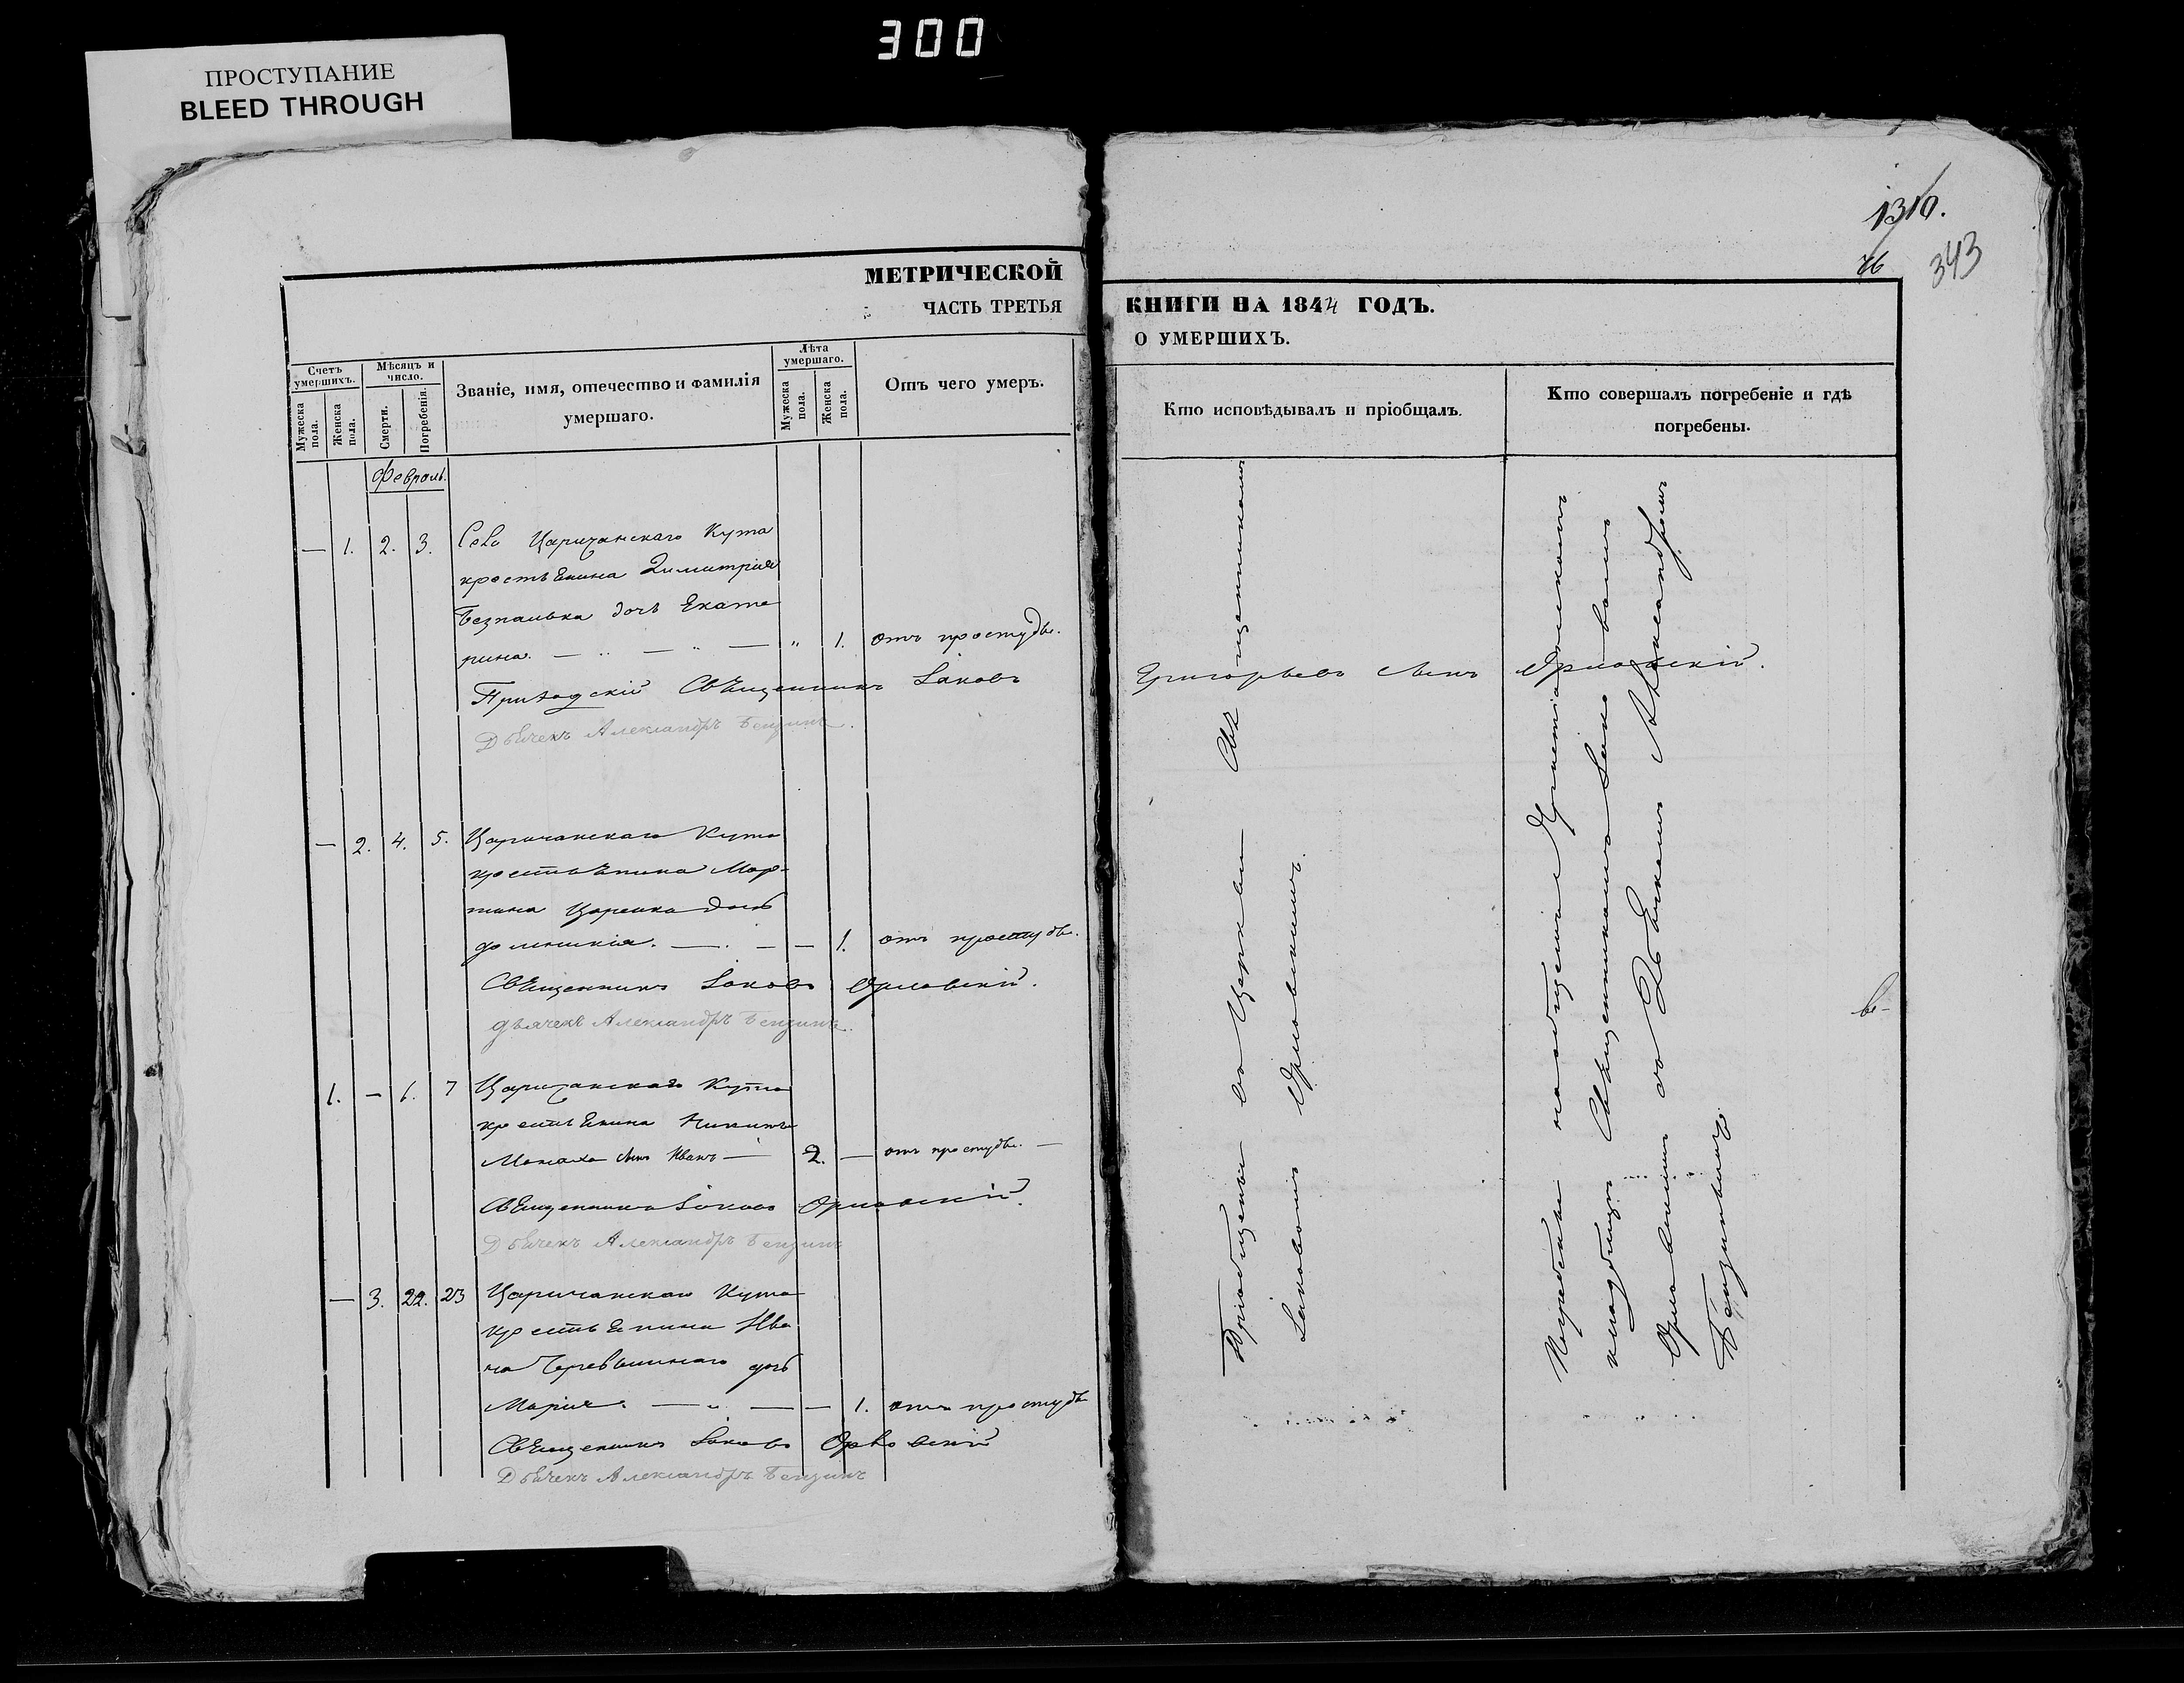 300
ПРОСТУПАНИЕ
BLEED THROUGH
1316.
76
343
МЕТРИЧЕСКОЙ
ЧАСТЬ ТРЕТЬЯ
КНИГИ НА 1844 ГОДЪ.
О УМЕРШИХЪ.
Счетъ умершихъ.
Мужеска пола.
Женска пола.
Мѣсяцъ и число.
Смерти.
Погребенія.
Званіе, имя, отечество и фамилія
умершаго.
Лѣта умершаго.
Мужеска пола.
Женска пола.
Отъ чего умеръ.
Кто исповѣдывалъ и пріобщалъ.
Кто совершалъ погребеніе и гдѣ
погребены.
Февраль.
— 1. 2. 3. Села Царичанскаго Кута
крестьянина Димитрія
Безпалька дочь Екате
рина. — „ — „ — „ 1. отъ простуды.
Приходскій Священникъ Іаковъ Григорьевъ сынъ Орловскій.
Дьячекъ Александръ Бензинъ.
— 2. 4. 5. Царичанскаго Кута
крестьянина Мар-
тина Царенка дочь
— 1. отъ простуды.
Священникъ Іаковъ Орловскій.
дьячекъ Александръ Бензинъ.
1. — 6. 7 Царичанскаго Кута
крестьянина Никиты
сынъ Иванъ — 2. — отъ простуды. —
Священникъ Іаковъ Орловскій.
Дьячекъ Александръ Бензинъ
— 3. 22. 23 Царичанскаго Кута
крестьянина Ива
на дочь
Марія. — „ — — 1. отъ простуды
Священникъ Іаковъ Орловскій
Дьячекъ Александръ Бензинъ
Пріобщены въ Церкви Священникомъ
Іаковомъ Орловскимъ.
Погребены на общемъ Христіанскомъ
кладбищѣ Священникомъ Іаковомъ
Орловскимъ со Дьячкомъ Александромъ
Бензинымъ.